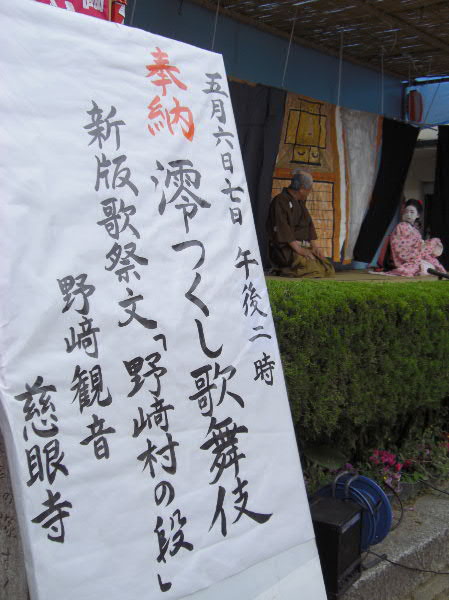 五月六日七日 午後二時
奉納 澪つくし歌舞伎
新版歌祭文「野﨑村の段」
野﨑観音
慈眼寺